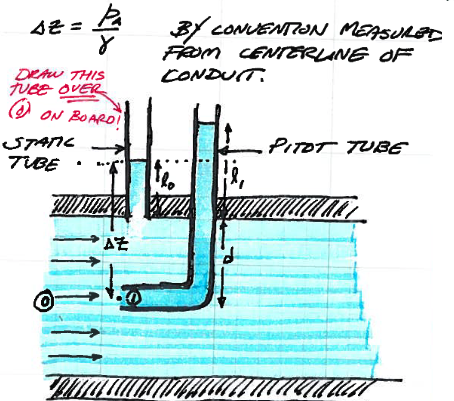 Δz = p_A / γ
BY CONVENTION MEASURED
FROM CENTERLINE OF
CONDUIT.
DRAW THIS
TUBE OVER
① ON BOARD!
STATIC
TUBE
PITOT TUBE
l₀
l₁
Δz
d
⓪
①